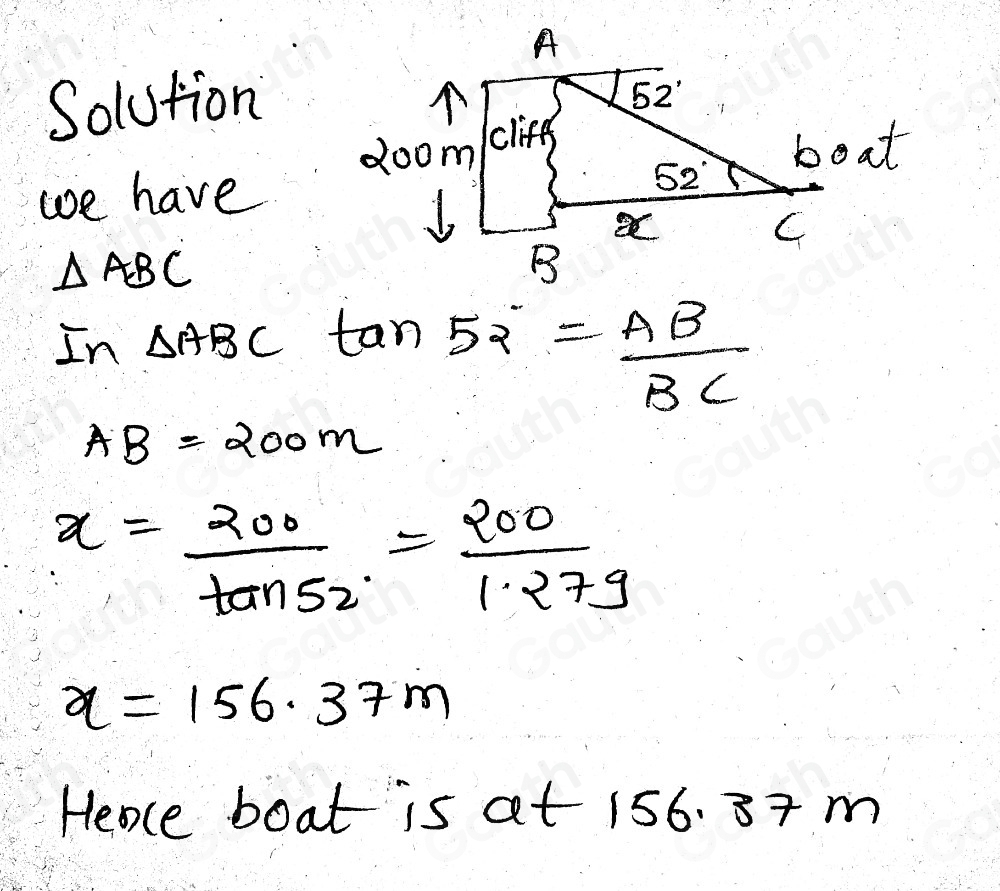 Solution
we have
Δ ABC
A
52°
cliff
200m
52°
boat
x
C
B
In ΔABC tan 52° = AB / BC
AB = 200m
x = 200 / tan52° = 200 / 1.279
x = 156.37m
Hence boat is at 156.37 m
Gauth